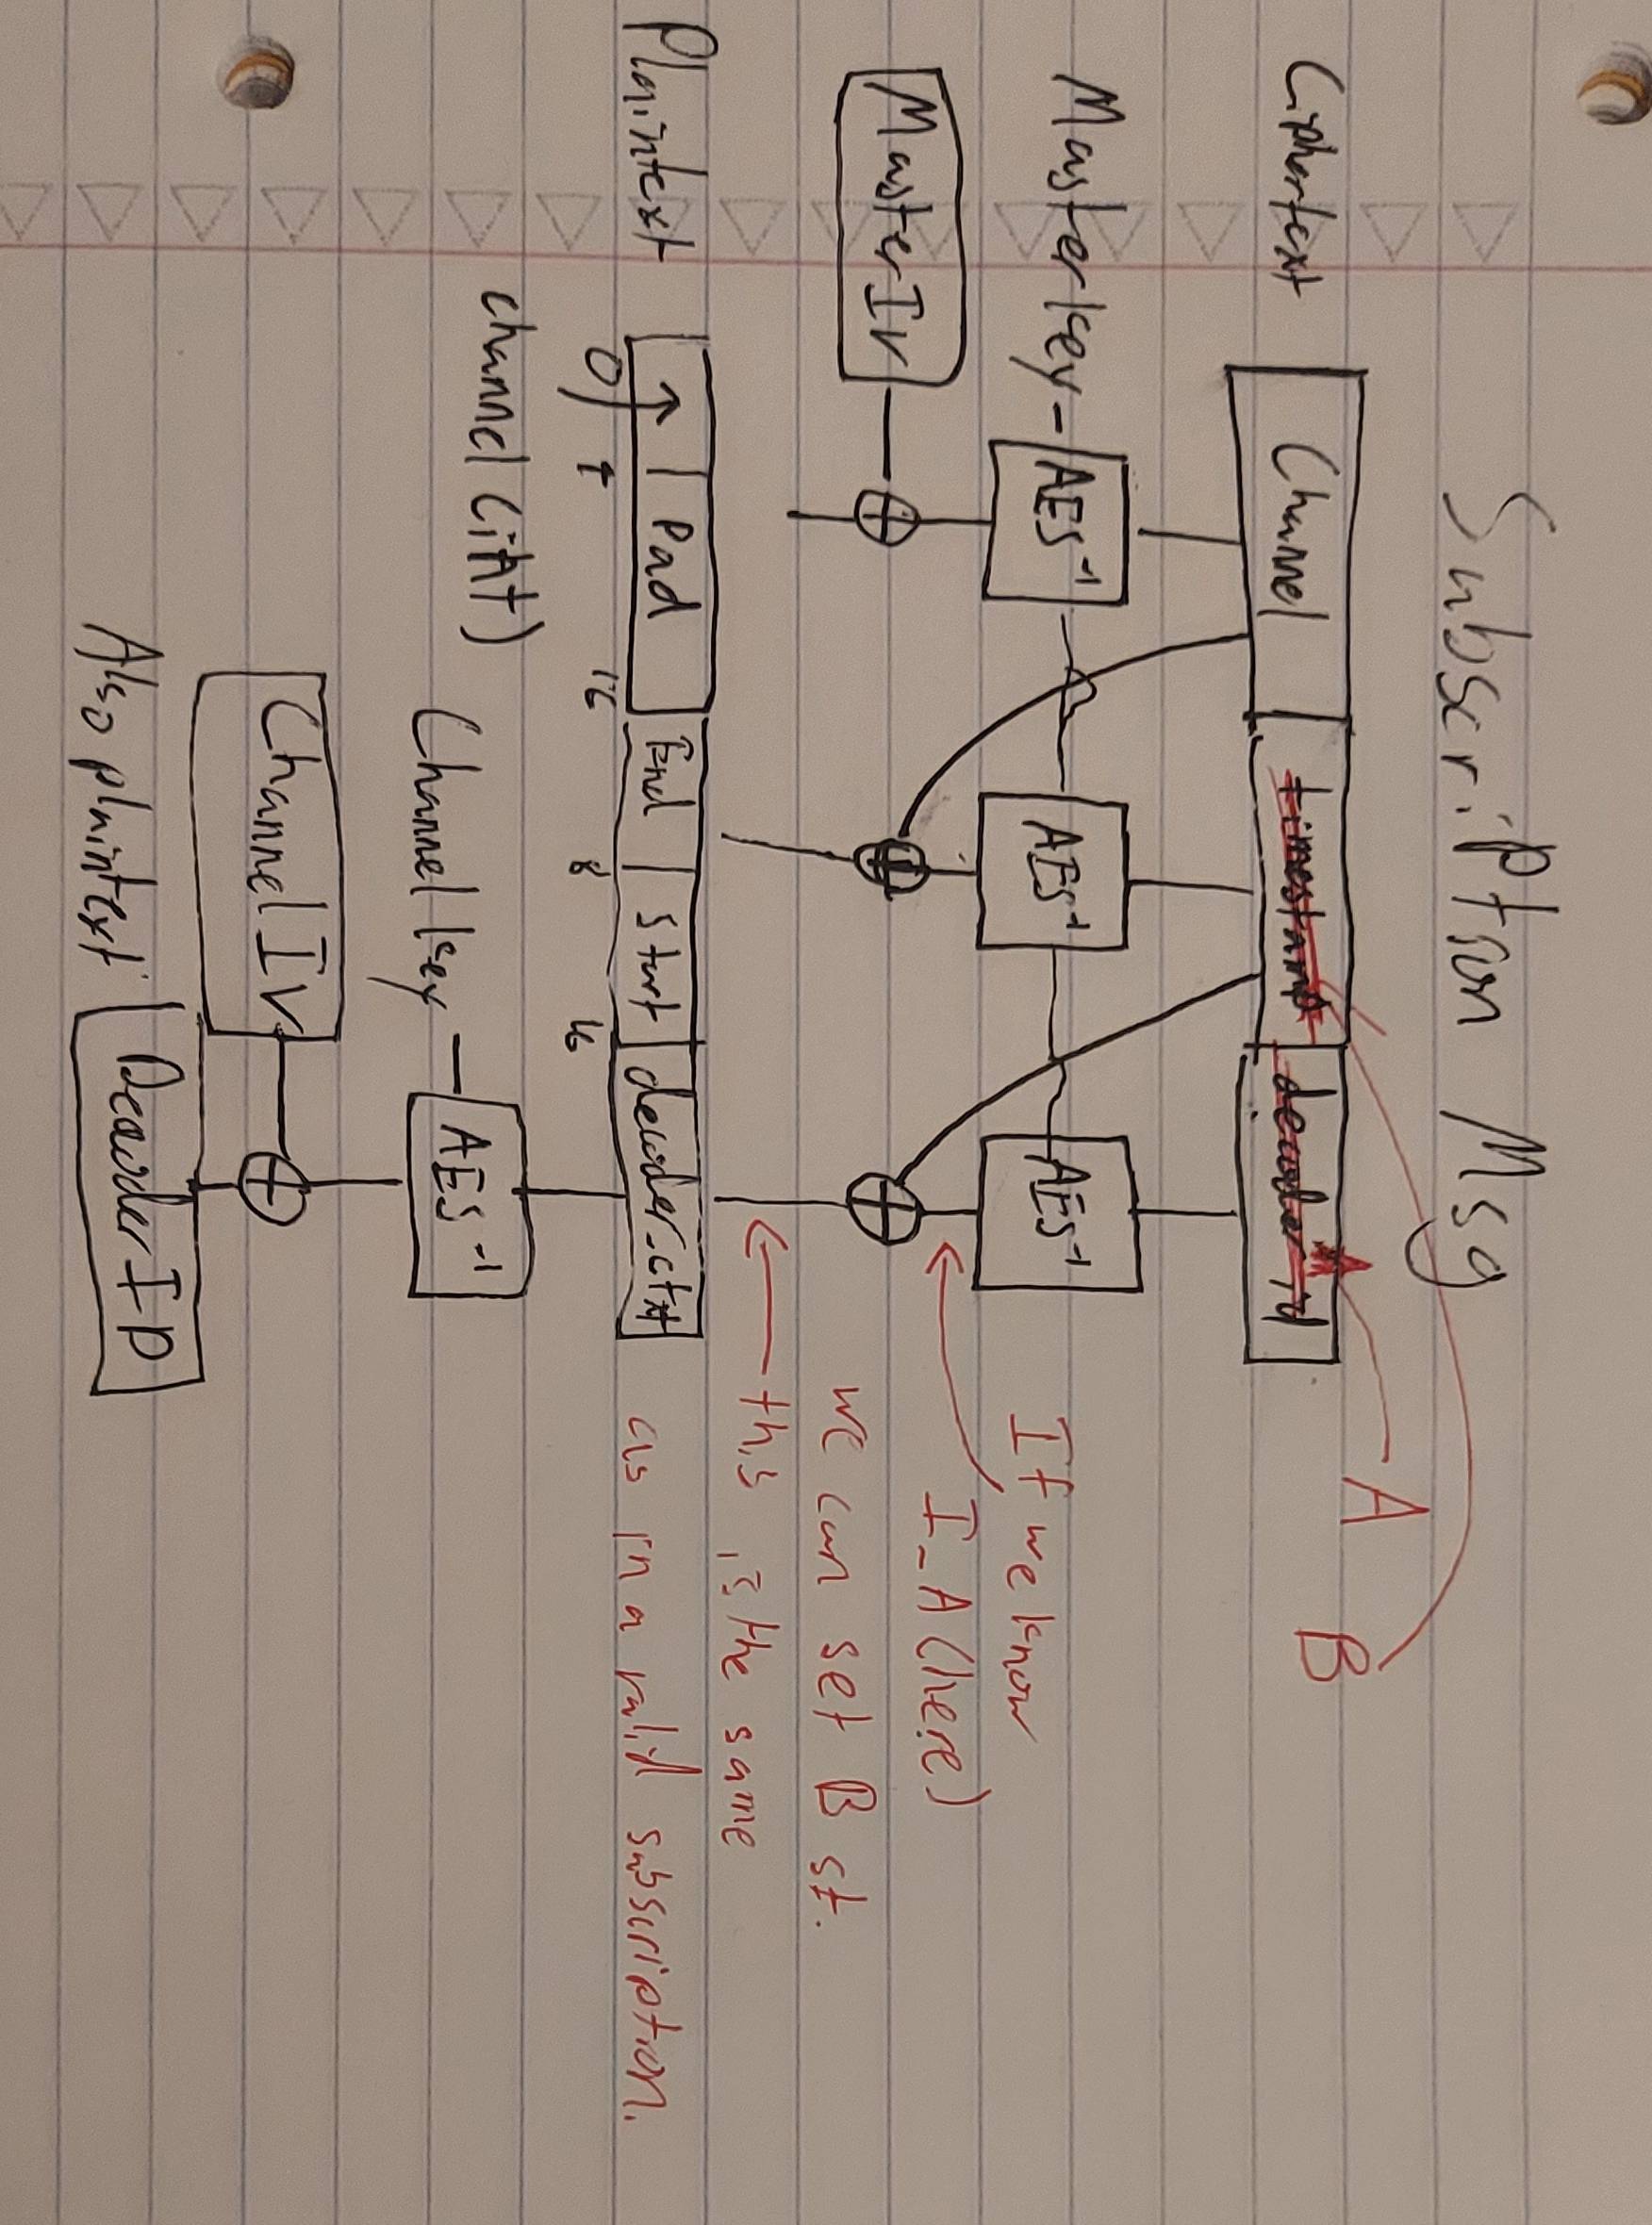 Subscription Msg
Ciphertext
Channel
timestamp
decoder id
A
B
Master key
AES⁻¹
AES⁻¹
AES⁻¹
Master Iv
If we know
I_A (here)
we can set B st.
this is the same
as in a valid subscription.
Plaintext
Pad
End
Start
decoder_ctxt
0
4
16
8
16
channel (int)
Channel key
AES⁻¹
Channel Iv
Also plaintext
Decoder ID